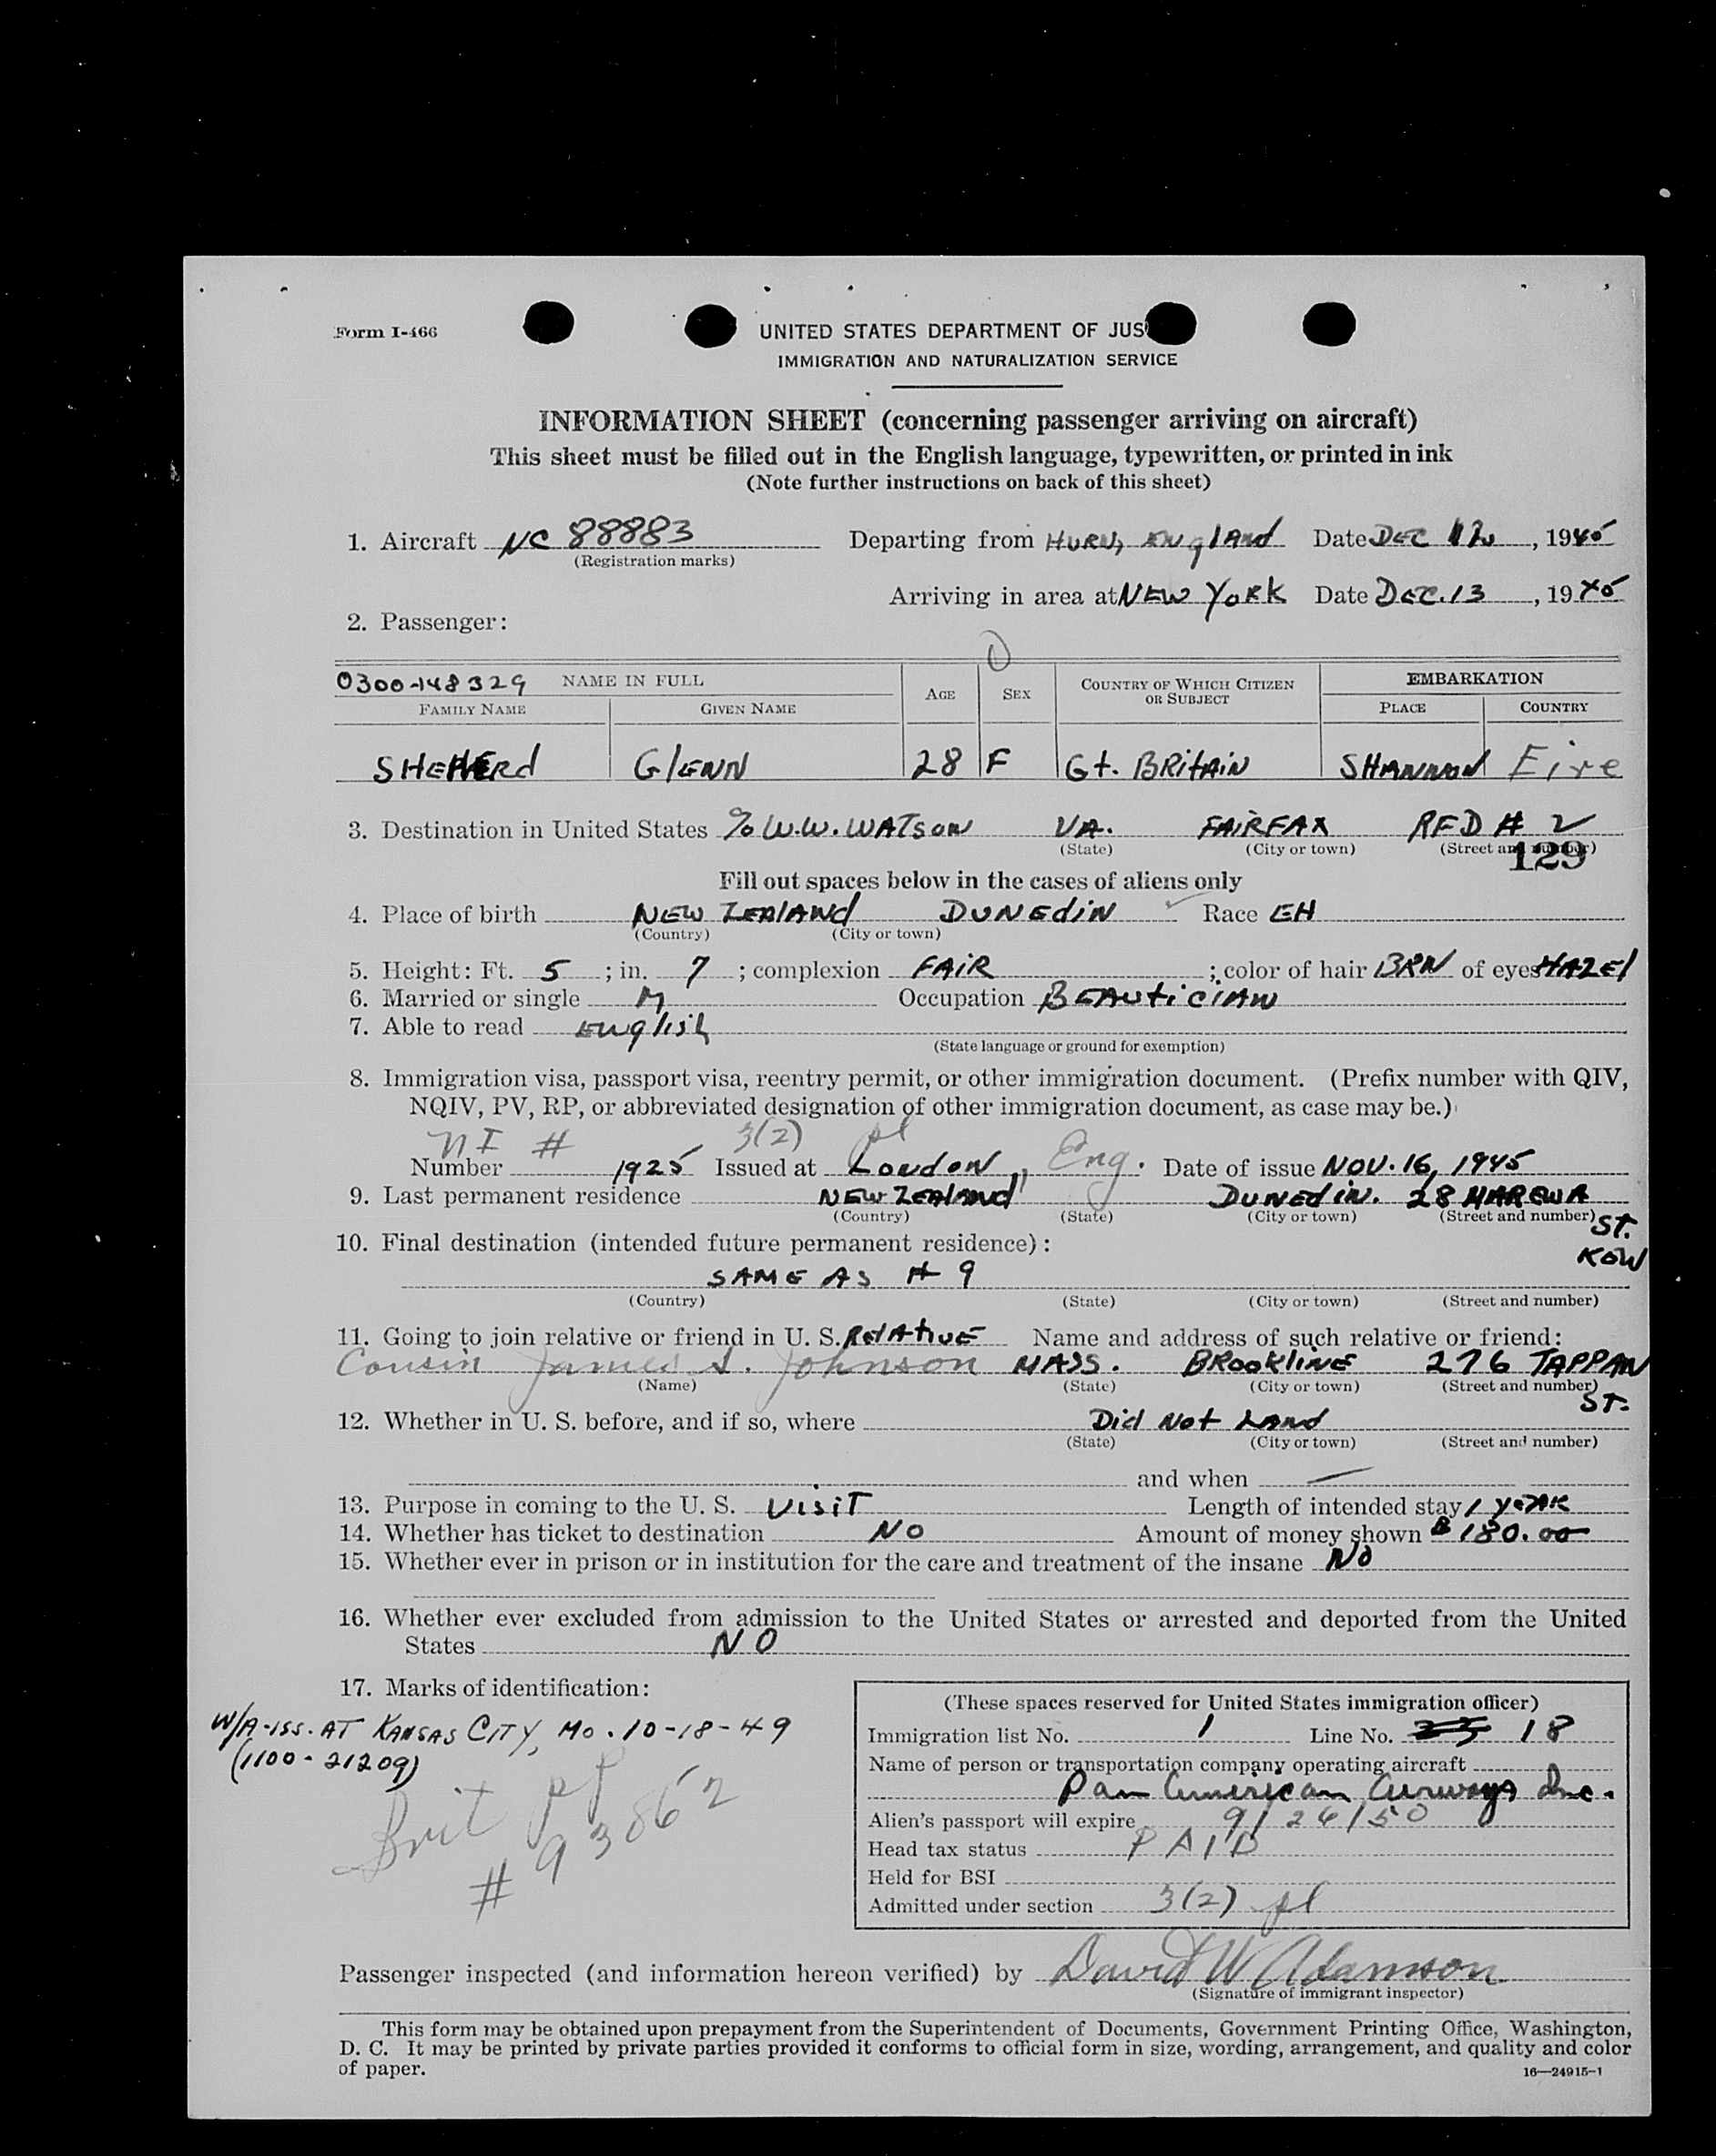 Form I-466
UNITED STATES DEPARTMENT OF JUS
IMMIGRATION AND NATURALIZATION SERVICE
INFORMATION SHEET (concerning passenger arriving on aircraft)
This sheet must be filled out in the English language, typewritten, or printed in ink
(Note further instructions on back of this sheet)
1. Aircraft NC 88883 Departing from HURN, ENglANd Date DEC 12, 1945
(Registration marks)
Arriving in area at NEW YORK Date DEC. 13, 1945
2. Passenger:
0300-148329 NAME IN FULL AGE SEX COUNTRY OF WHICH CITIZEN OR SUBJECT EMBARKATION
FAMILY NAME GIVEN NAME PLACE COUNTRY
GlENN 28 F Gt. BRitAiN SHANNON Eire
3. Destination in United States % W.W. WATSON VA. FAIRFAX RFD # 2
(State) (City or town) (Street and number)
129
Fill out spaces below in the cases of aliens only
4. Place of birth NEW ZEAlANd DUNEdiN Race EH
(Country) (City or town)
5. Height: Ft. 5; in. 7; complexion FAiR; color of hair BRN of eyes HAZEl
6. Married or single M Occupation BEAUticiAN
7. Able to read ENglish
(State language or ground for exemption)
8. Immigration visa, passport visa, reentry permit, or other immigration document. (Prefix number with QIV,
NQIV, PV, RP, or abbreviated designation of other immigration document, as case may be.)
NI # 3(2) pl
Number 1925 Issued at LONdON, Eng. Date of issue NOV. 16, 1945
9. Last permanent residence NEW ZEAlANd DUNEdiN. 28 MAREWA
(Country) (State) (City or town) (Street and number) ST.
10. Final destination (intended future permanent residence): KOW
SAME AS # 9
(Country) (State) (City or town) (Street and number)
11. Going to join relative or friend in U. S. RElAtivE Name and address of such relative or friend:
Cousin James S. Johnson MASS. BROOKLINE 276 TAPPAN
(Name) (State) (City or town) (Street and number)
ST.
12. Whether in U. S. before, and if so, where Did Not LANd
(State) (City or town) (Street and number)
and when —
13. Purpose in coming to the U. S. VISIT Length of intended stay 1 YEAR
14. Whether has ticket to destination NO Amount of money shown $ 180.00
15. Whether ever in prison or in institution for the care and treatment of the insane NO
16. Whether ever excluded from admission to the United States or arrested and deported from the United
States NO
17. Marks of identification:
W/A-ISS. AT KANSAS CITY, MO. 10-18-49
(1100-21209)
Brit pp
# 93862
(These spaces reserved for United States immigration officer)
Immigration list No. 1 Line No. 18
Name of person or transportation company operating aircraft
Pan American Airways Inc.
Alien's passport will expire 9/26/50
Head tax status PAID
Held for BSI
Admitted under section 3(2) pl
Passenger inspected (and information hereon verified) by David W Adamson
(Signature of immigrant inspector)
This form may be obtained upon prepayment from the Superintendent of Documents, Government Printing Office, Washington,
D. C. It may be printed by private parties provided it conforms to official form in size, wording, arrangement, and quality and color
of paper.
16—24915-1